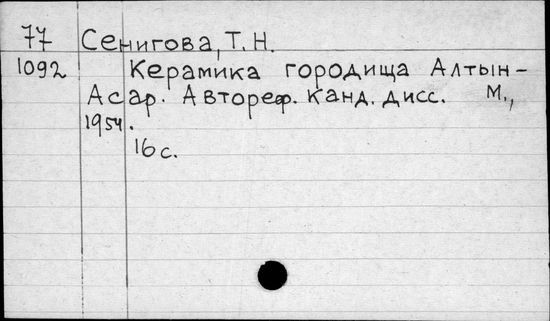 77 Сенигова, Т. Н.
1092 Керамика городища Алтын-
Асар. Автореф. канд. дисс. М.,
1954.
16 с.